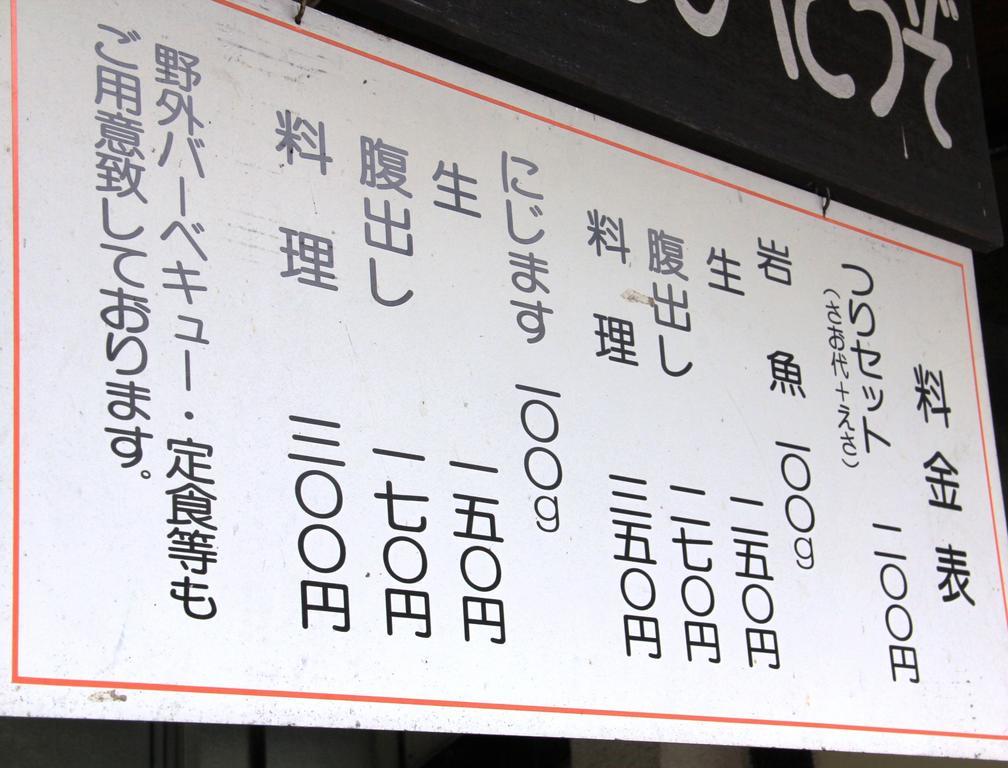 料金表
つりセット 二〇〇円
(さおき+えさ)
岩魚 一〇〇g
生 二五〇円
腹出し 二七〇円
料理 三五〇円
にじます 一〇〇g
生 一五〇円
腹出し 一七〇円
料理 三〇〇円
野外バーベキュー・定食等も
ご用意致しております。